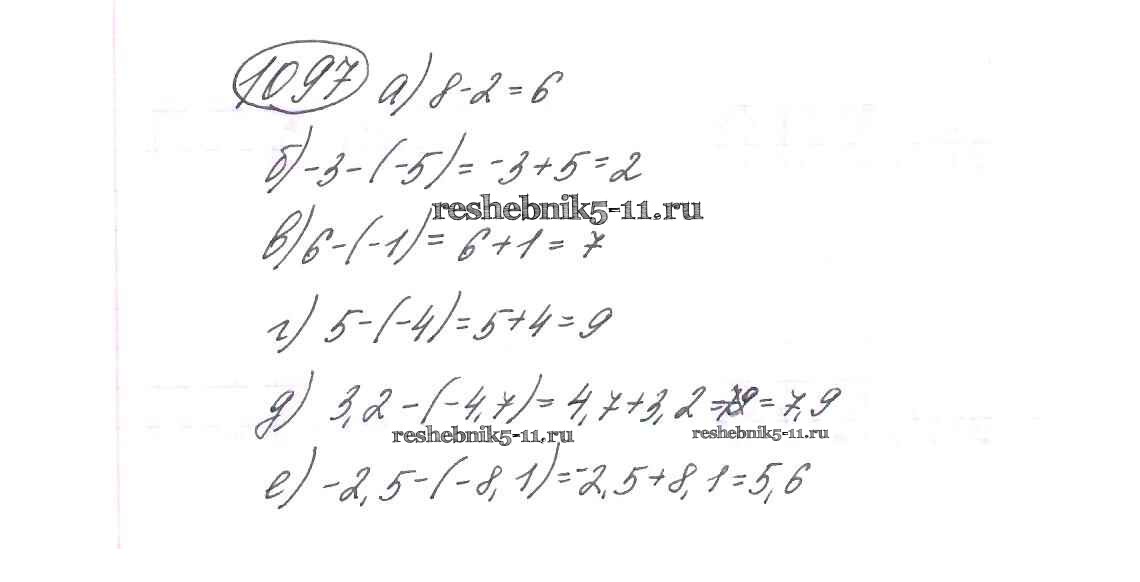 1097 а) 8-2=6
б) -3-(-5)=-3+5=2
reshebnik5-11.ru
в) 6-(-1)=6+1=7
г) 5-(-4)=5+4=9
д) 3,2-(-4,7)=4,7+3,2= =7,9
reshebnik5-11.ru reshebnik5-11.ru
е) -2,5-(-8,1)=-2,5+8,1=5,6